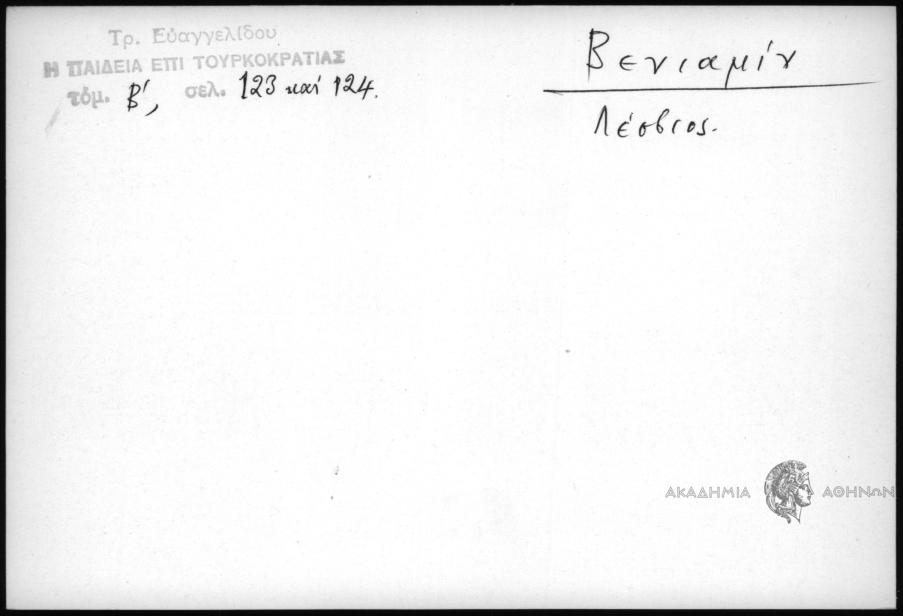 Τρ. Εὐαγγελίδου
Η ΠΑΙΔΕΙΑ ΕΠΙ ΤΟΥΡΚΟΚΡΑΤΙΑΣ
τόμ. Β', σελ. 123 καί 124.
Βενιαμίν
Λέσβιος.
ΑΚΑΔΗΜΙΑ ΑΘΗΝΩΝ